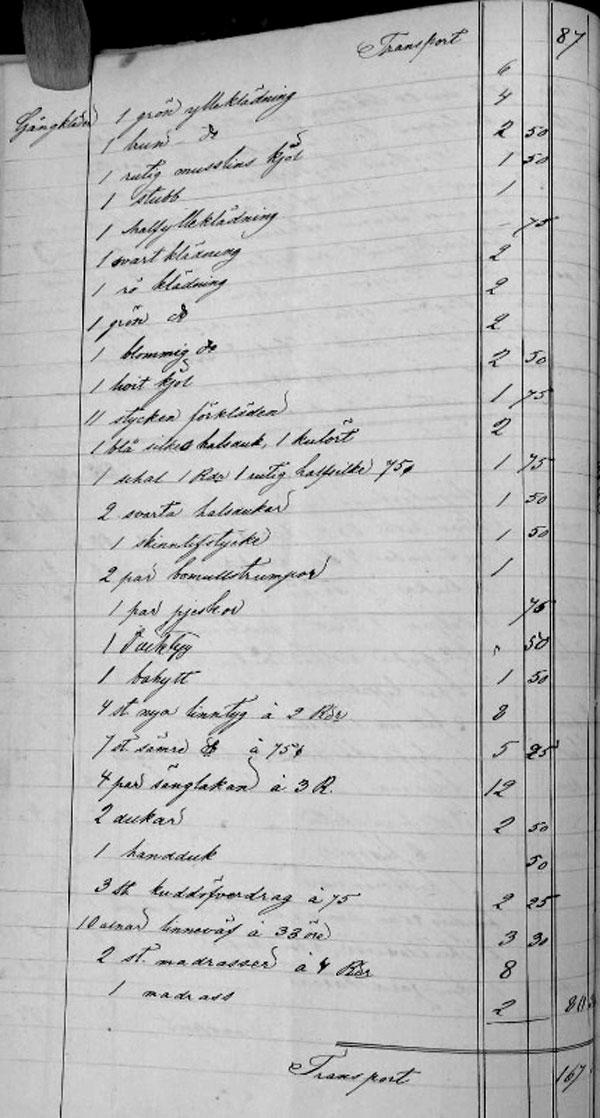 Transport 87
Gångkläder 1 grön ylleklädning 6
1 brun do 4
1 rutig musslins kjol 2 50
1 stubb 1 50
1 halfylleklädning 1
1 svart klädning - 75
1 rö klädning 2
1 grön do 2
1 blommig do 2
1 hvit kjol 2 50
11 stycken förkläden 1 75
1 blå silke halsduk, 1 kulört 2
1 schal 1 Rdr 1 rutig halfsilke 75 1 75
2 svarta halsdukar 1 50
1 skinnlifstycke 1 50
2 par bomullstrumpor 1
1 par pjeskor 75
1 50
1 bahytt 1 50
4 st. nya linntyg à 2 Rdr 8
7 st sämre do à 75 5 25
4 par sänglakan à 3 R. 12
2 dukar 2 50
1 handduk 50
3 st kuddöfverdrag à 75 2 25
10 alnar linneväf à 33 öre 3 30
2 st. madrasser à 4 Rdr 8
1 madrass 2 80
Transport 167